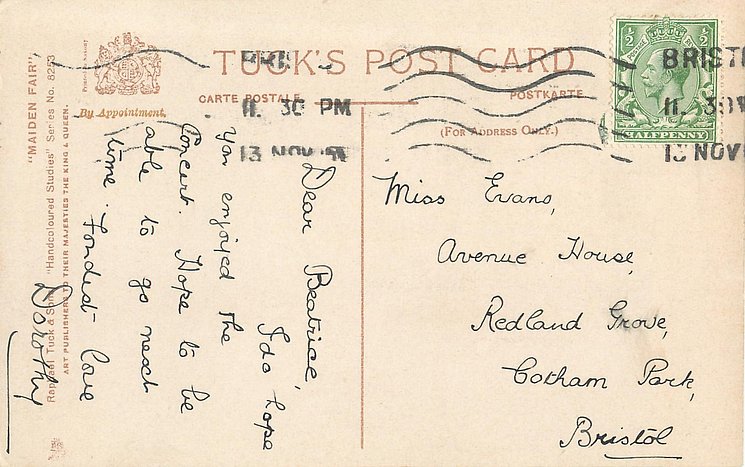 TUCK'S POST CARD
CARTE POSTALE
POSTKARTE
(FOR ADDRESS ONLY.)
By Appointment.
"MAIDEN FAIR"
Raphael Tuck & Sons' "Handcoloured Studies" Series No. 8253
ART PUBLISHERS TO THEIR MAJESTIES THE KING & QUEEN.
11. 30 PM
13 NOV
BRIST
11. 30
13 NOV
½ ½
HALFPENNY
Dear Beatrice,
I do hope
you enjoyed the
Concert. Hope to be
able to go next
time. Fondest love
Dorothy
Miss Evans,
Avenue House,
Redland Grove,
Cotham Park,
Bristol